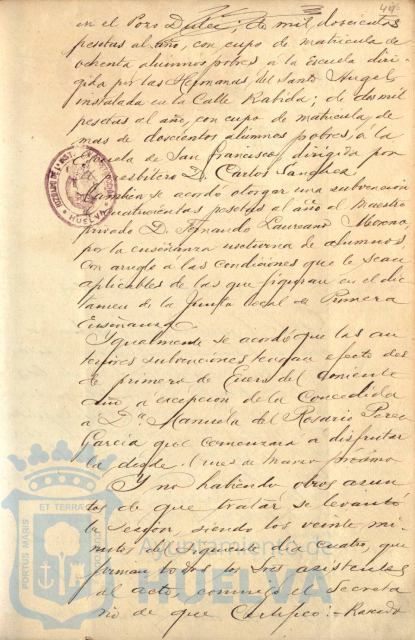 en el Pozo Dulce; de mil doscientas
pesetas al año, con cupo de matricula de
ochenta alumnos pobres a la Escuela diri-
gida por las Hermanas del Santo Angel,
instalada en la Calle Rabida; de dos mil
pesetas al año, con cupo de matricula de
mas de doscientos alumnos pobres, á la
Escuela de San Francisco, dirigida por
Presbitero D. Carlos Sanchez
Tambien se acordó otorgar una subvencion
cuatrocientas pesetas al año al Maestro
privado D. Fernando Laureano Moreno,
por la enseñanza nocturna de alumnos,
con arreglo á las condiciones que le sean
aplicables de las que figuran en el dic-
tamen de la Junta Local de Primera
Enseñanza
Igualmente se acordó que las an-
teriores subvenciones tengan efecto des-
de primero de Enero del corriente
año, a excepcion de la concedida
a Dª Manuela del Rosario Perez
Garcia que comenzara a disfrutar
la desde el mes de Marzo próximo
Y no habiendo otros asun-
tos de que tratar se levantó
la Sesion, siendo las veinte mi-
nutos del siguiente dia cuatro, que
firman todos los Sres asistentes
al acto, conmigo el Secreta
rio de que Certifico:-
HUELVA
PORTUS MARIS
ET TERRAE
Ayuntamiento de
HUELVA